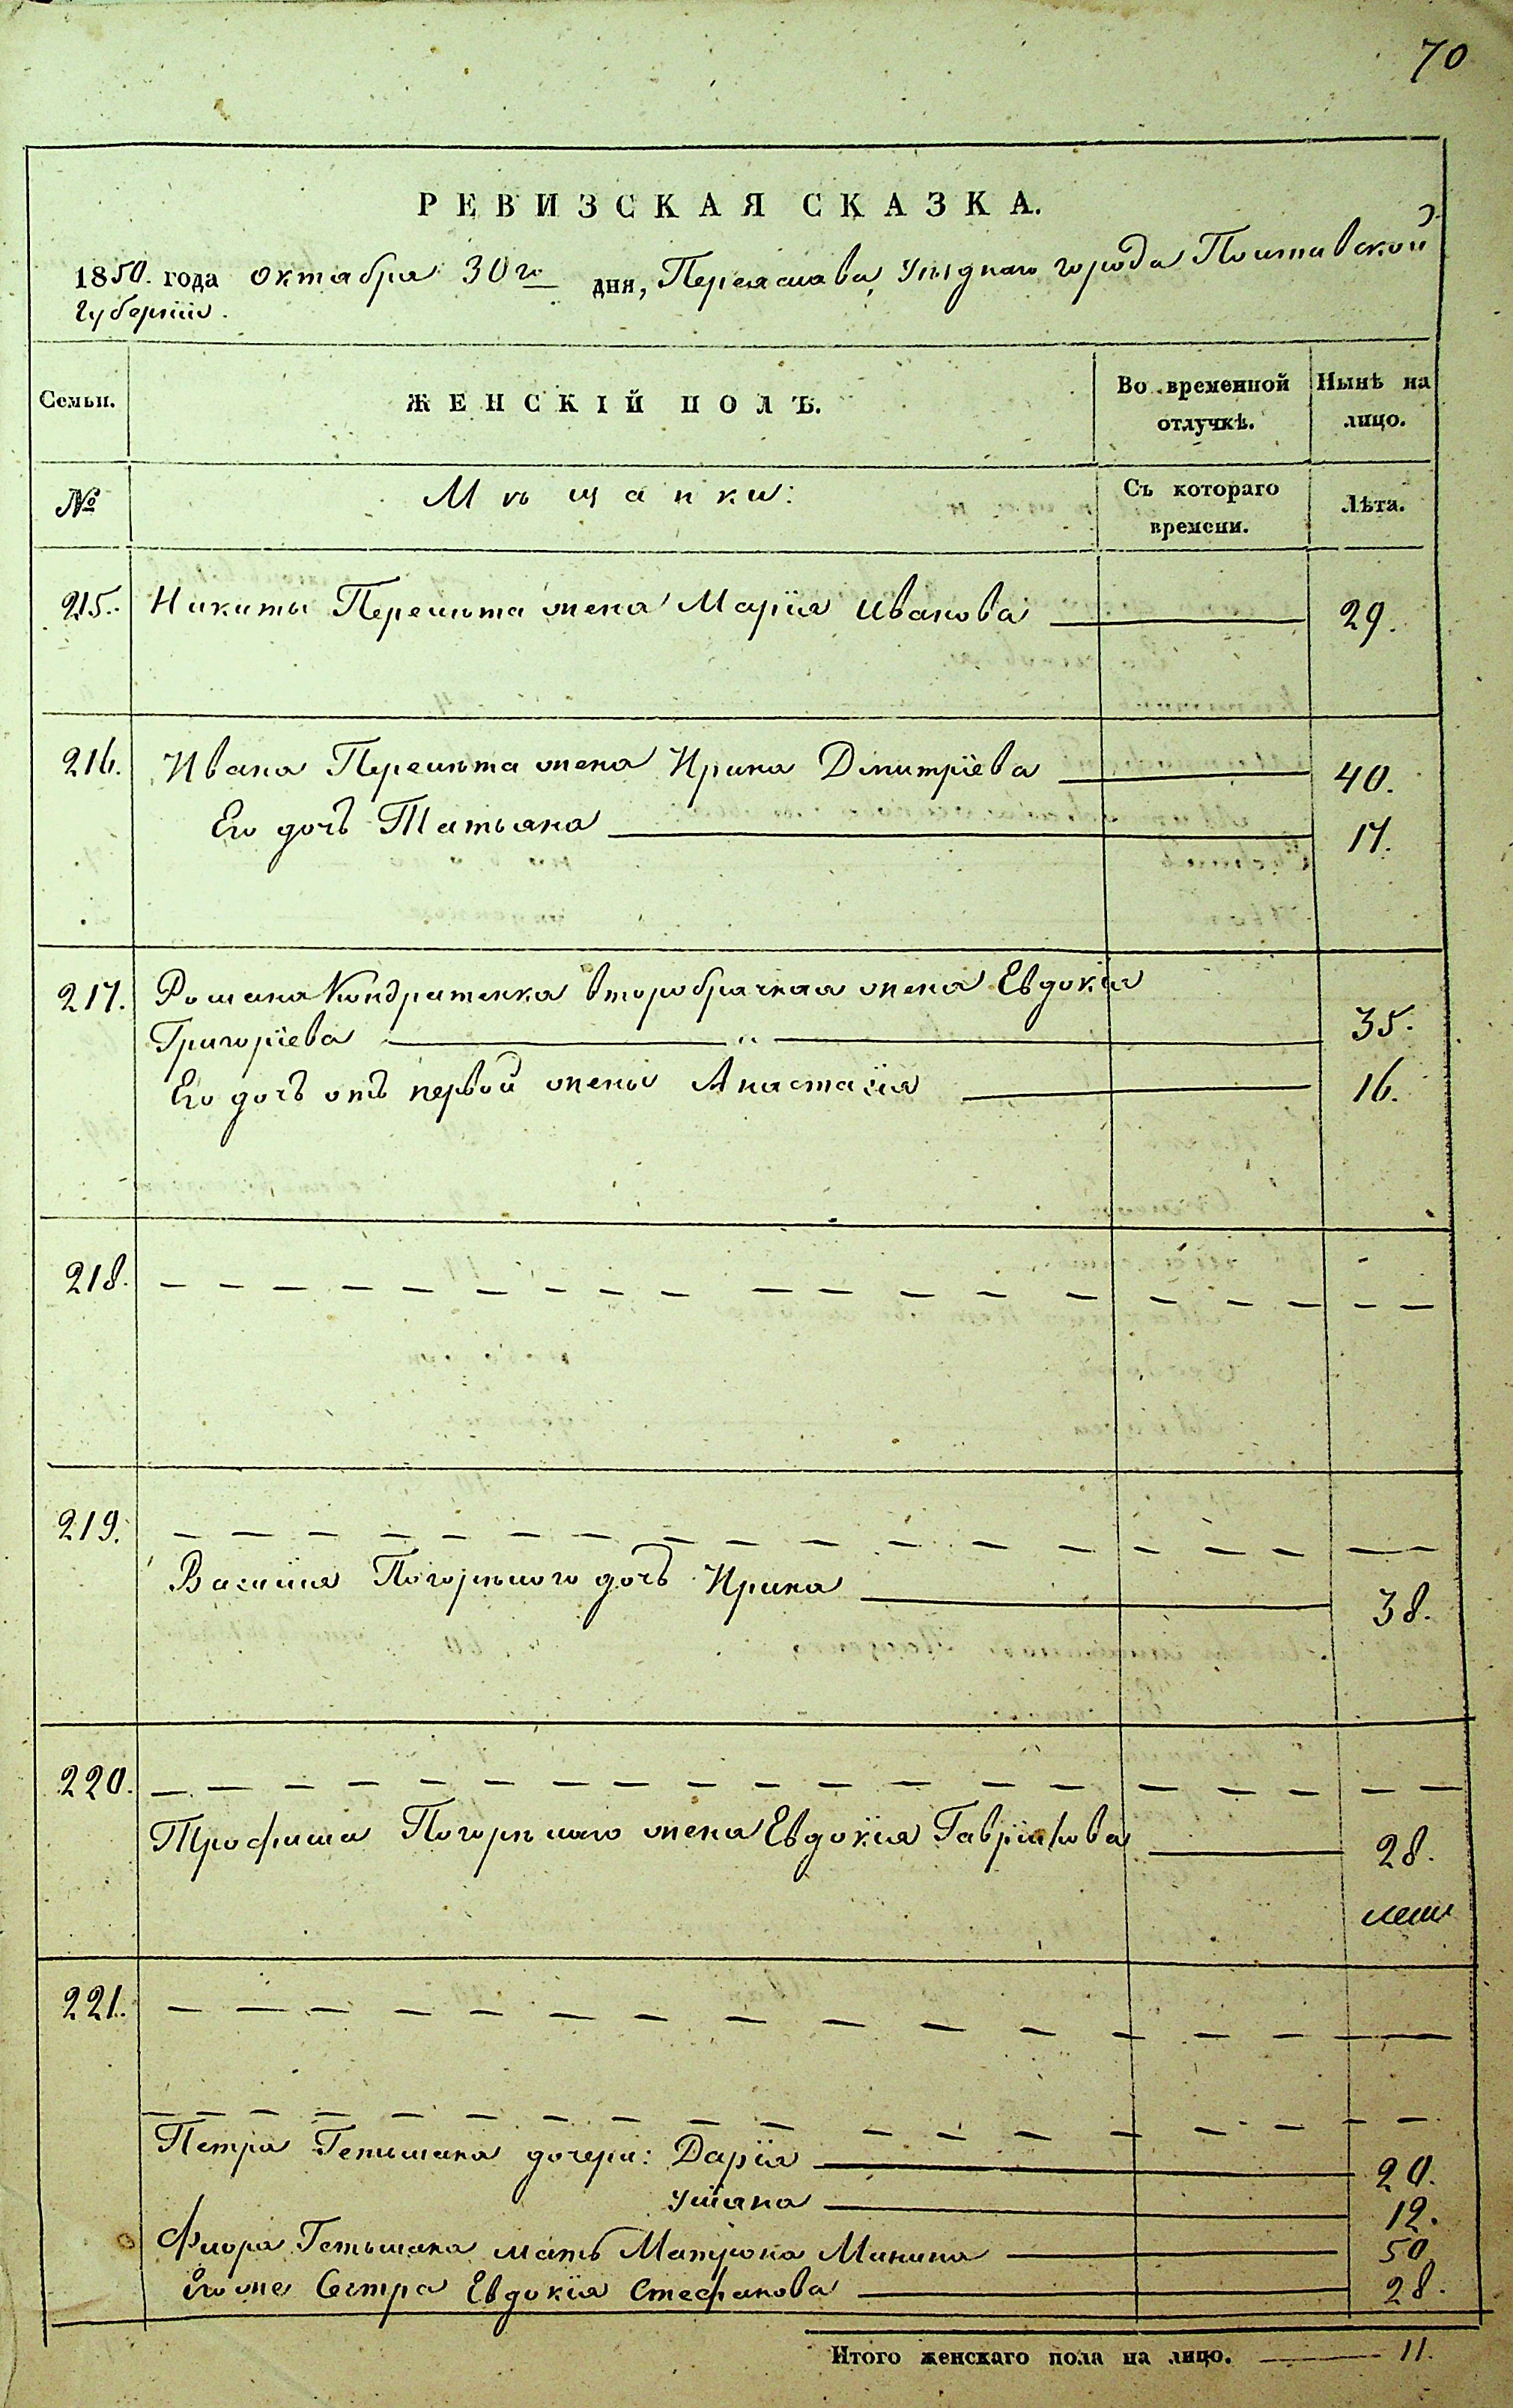 70
РЕВИЗСКАЯ СКАЗКА.
1850. года октября 30го дня, Переяслава, Уѣзднаго города Полтавской
Губерніи.
Семьи.
ЖЕНСКІЙ ПОЛЪ.
Во временной отлучкѣ.
Нынѣ на лицо.
№
Мѣщанки:
Съ котораго времени.
Лѣта.
215. Никиты Перешта жена Марія Иванова 29.
216. Ивана Перешта жена Ирина Дмитріева 40.
Его дочь Татьяна 17.
217. Романа Кондратенка второбрачная жена Евдокія
Григоріева " 35.
Его дочь отъ первой жены Анастасія 16.
218.
219.
Василия Погорѣлого дочь Ирина 38.
220.
Трофима Погорѣлого жена Евдокія Гаврілова 28.
221.
Петра Гетьмана дочери: Дарія 20.
Уліана 12.
Флора Гетьмана мать Матрона Минина 50
Его же Сестра Евдокія Стефанова 28.
Итого женскаго пола на лицо. 11.